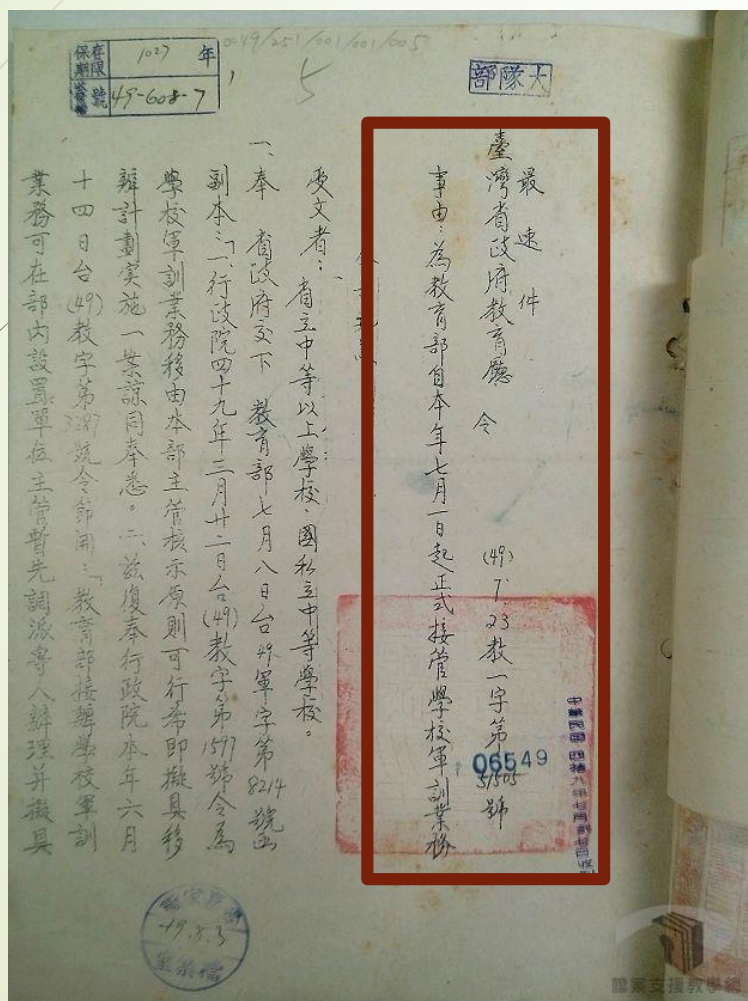 0049/251/001/001/005
保存年限 1027 年
檔號 49-608-7
5
大隊部
最速件
臺灣省政府教育廳 令
(49) 7. 23 教一字第51505號
06549
事由:為教育部自本年七月一日起正式接管學校軍訓業務
受文者:省立中等以上學校、國私立中等學校。
一、奉 省政府交下 教育部七月八日台49軍字第8214號函
副本:「一、行政院四十九年三月廿二日台(49)教字第1597號令為
學校軍訓業務移由本部主管核示原則可行希即擬具移
辦計劃实施一案諒同奉悉。二、茲復奉行政院本年六月
十四日台(49)教字第3287號令節開:「教育部接辦學校軍訓
業務可在部内設置單位主管暫先調派專人辦理并擬具
49.8.3
檔案支援教學網